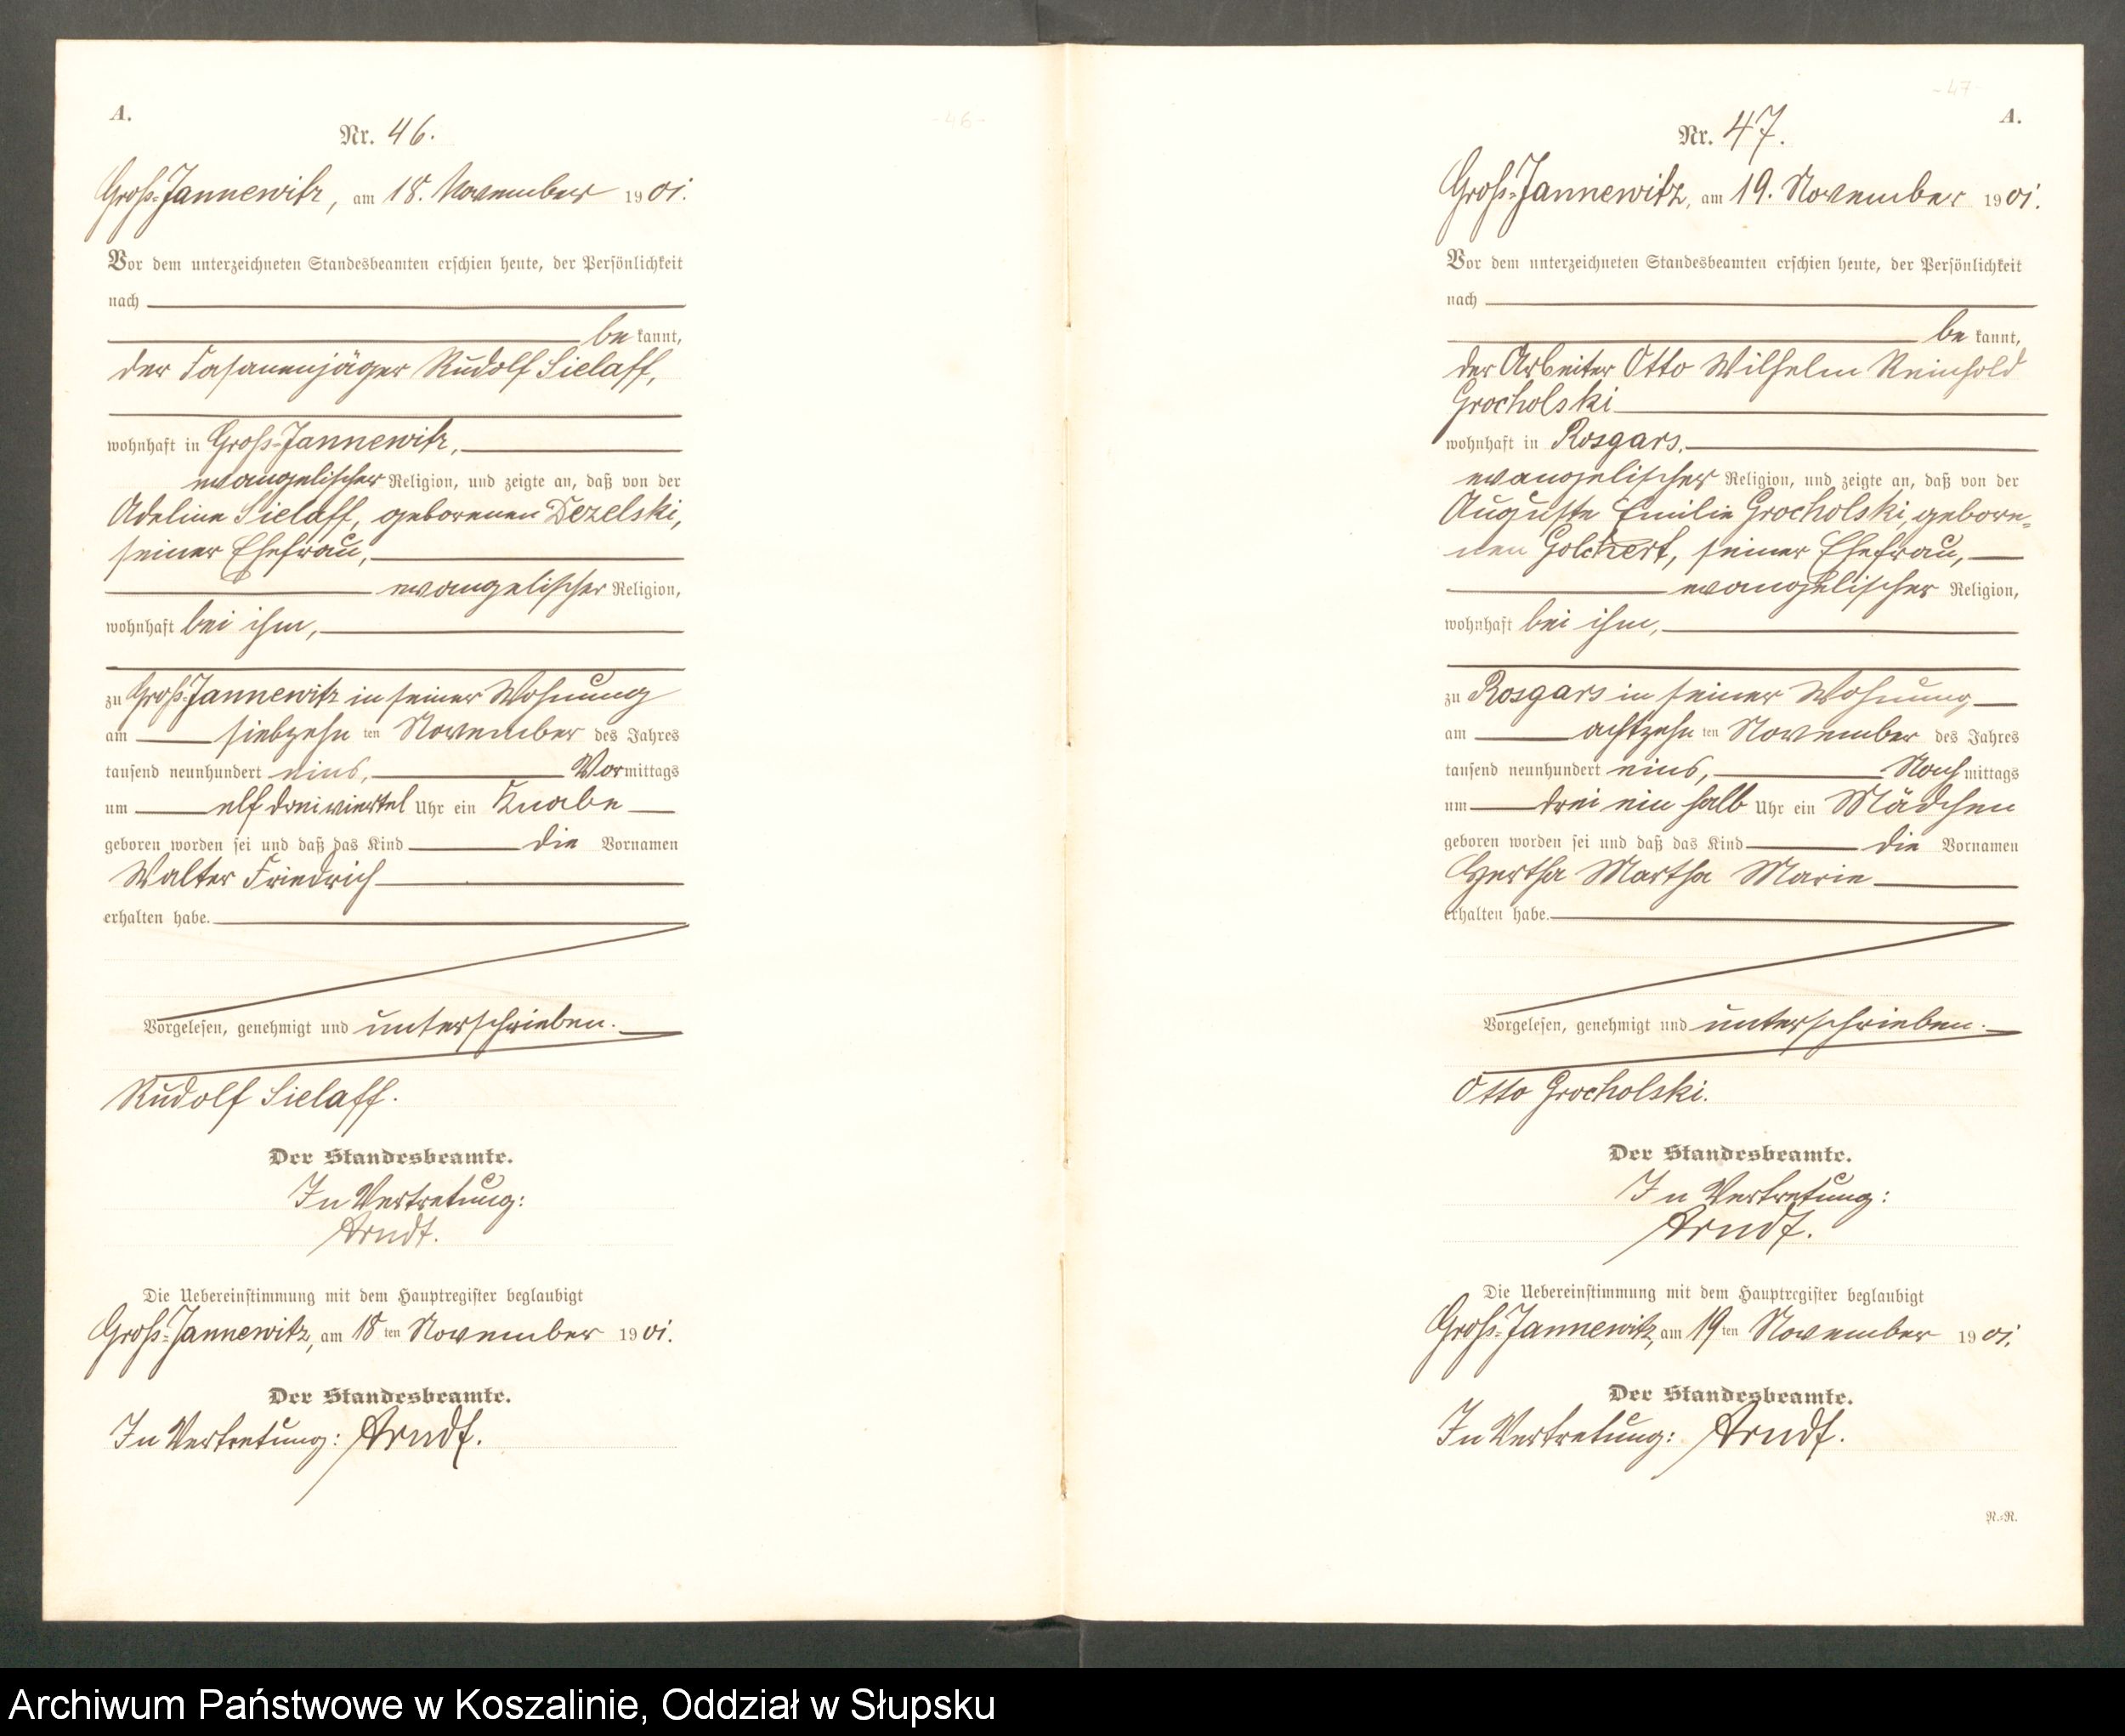 A.
Nr. 46.
Groß-Jannewitz, am 18. November 1901.
Vor dem unterzeichneten Standesbeamten erschien heute, der Persönlichkeit
nach
bekannt,
der Fasanenjäger Rudolf Sielaff,
wohnhaft in Groß-Jannewitz,
evangelischer Religion, und zeigte an, daß von der
Adeline Sielaff, geborenen Dezelski,
seiner Ehefrau,
evangelischer Religion,
wohnhaft bei ihm,
zu Groß-Jannewitz in seiner Wohnung
am siebzehnten November des Jahres
tausend neunhundert eins, Vormittags
um elf dreiviertel Uhr ein Knabe
geboren worden sei und daß das Kind die Vornamen
Walter Friedrich
erhalten habe.
Vorgelesen, genehmigt und unterschrieben.
Rudolf Sielaff.
Der Standesbeamte.
In Vertretung:
Arndt.
Die Uebereinstimmung mit dem Hauptregister beglaubigt
Groß-Jannewitz, am 18ten November 1901.
Der Standesbeamte.
In Vertretung: Arndt.
-46-
-47-
A.
Nr. 47.
Groß-Jannewitz, am 19. November 1901.
Vor dem unterzeichneten Standesbeamten erschien heute, der Persönlichkeit
nach
bekannt,
der Arbeiter Otto Wilhelm Reinhold
Grocholski
wohnhaft in Rosgars,
evangelischer Religion, und zeigte an, daß von der
Auguste Emilie Grocholski, gebore-
nen Golchert, seiner Ehefrau,
evangelischer Religion,
wohnhaft bei ihm,
zu Rosgars in seiner Wohnung
am achtzehnten November des Jahres
tausend neunhundert eins, Nachmittags
um drei ein halb Uhr ein Mädchen
geboren worden sei und daß das Kind die Vornamen
Hertha Martha Marie
erhalten habe.
Vorgelesen, genehmigt und unterschrieben.
Otto Grocholski.
Der Standesbeamte.
In Vertretung:
Arndt.
Die Uebereinstimmung mit dem Hauptregister beglaubigt
Groß-Jannewitz, am 19ten November 1901.
Der Standesbeamte.
In Vertretung: Arndt.
N.-R.
Archiwum Państwowe w Koszalinie, Oddział w Słupsku